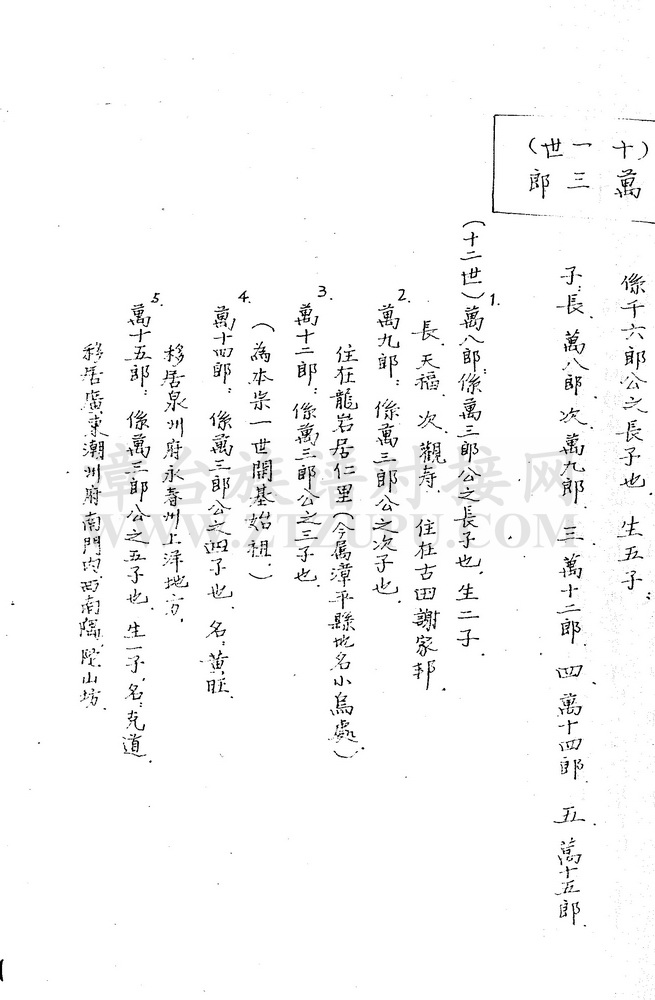 （十一世）
萬三郎
係千六郎公之長子也．生五子：
子：長．萬八郎．次．萬九郎．三．萬十二郎．四．萬十四郎．五．萬十五郎．
（十二世）
1. 萬八郎：係萬三郎公之長子也．生二子．
長．天福．次．觀寿．住在古田謝家邦．
2. 萬九郎：係萬三郎公之次子也．
住在龍岩居仁里（今屬漳平縣地名小烏處）
3. 萬十二郎：係萬三郎公之三子也．
（為本崇一世開基始祖．）
4. 萬十四郎：係萬三郎公之四子也．名：黄旺．
移居泉州府永春州上洋地方．
5. 萬十五郎：係萬三郎公之五子也．生一子，名：克道．
移居廣東潮州府南門内西南隅．陞山坊．
章台族譜對接网
WWW.ZTZUPU.COM